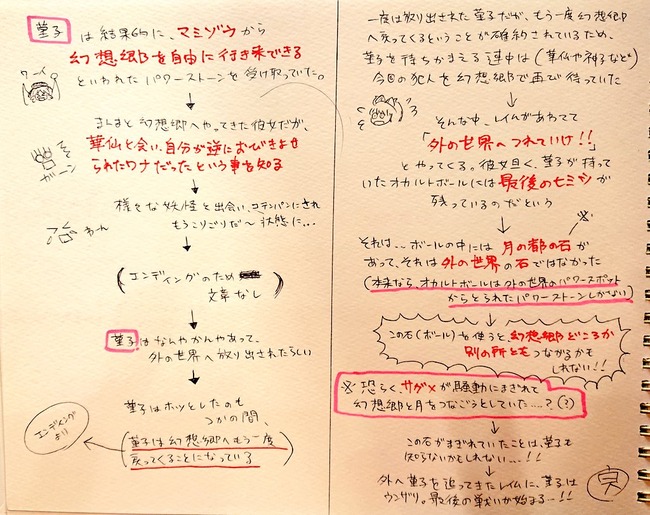 菫子 は結果的に、マミゾウから
幻想郷を自由に行き来できる
といわれたパワーストーンを受け取っていた。
ワーイ
↓
まんまと幻想郷へやってきた彼女だが、
華仙と会い、自分が逆におびきよせ
られたワナだったという事を知る
ガーン
↓
様々な妖怪と出会い、コテンパンにされ
もうこりごりだ〜 状態に…
↓
(エンディングのため
文章なし)
↓
菫子 はなんやかんやあって、
外の世界へ放り出されたらしい
↓
菫子はホッとしたのも
つかの間、
(菫子は幻想郷へもう一度
戻ってくることになっている)
エンディングより
一度は放り出された菫子だが、もう一度幻想郷
へ戻ってくるということが確約されているため、
菫子を待ちかまえる連中は(華仙や神子など)
今回の犯人を幻想郷で再び待っていた
↓
そんな中、レイムがあわてて
「外の世界へつれていけ!!」
とやってくる。彼女曰く、菫子が持って
いたオカルトボールには最後のヒミツが
残っているのだという
↓
※
それは‥ボールの中には月の都の石が
あって、それは外の世界の石ではなかった
(本来なら、オカルトボールは外の世界のパワースポット
からとられたパワーストーンしかない)
↓
この石(ボール)を使うと、幻想郷どころか
別の所とをつながるかも
しれない!!
※恐らくサグメが騒動にまぎれて
幻想郷と月をつなごうとしていた‥‥?(?)
↓
この石がまぎれていたことは、菫子も
知らないかもしれない…!!
↓
外へ菫子を追ってきたレイムに、菫子は
ウンザリ。最後の戦いが始まる…!!